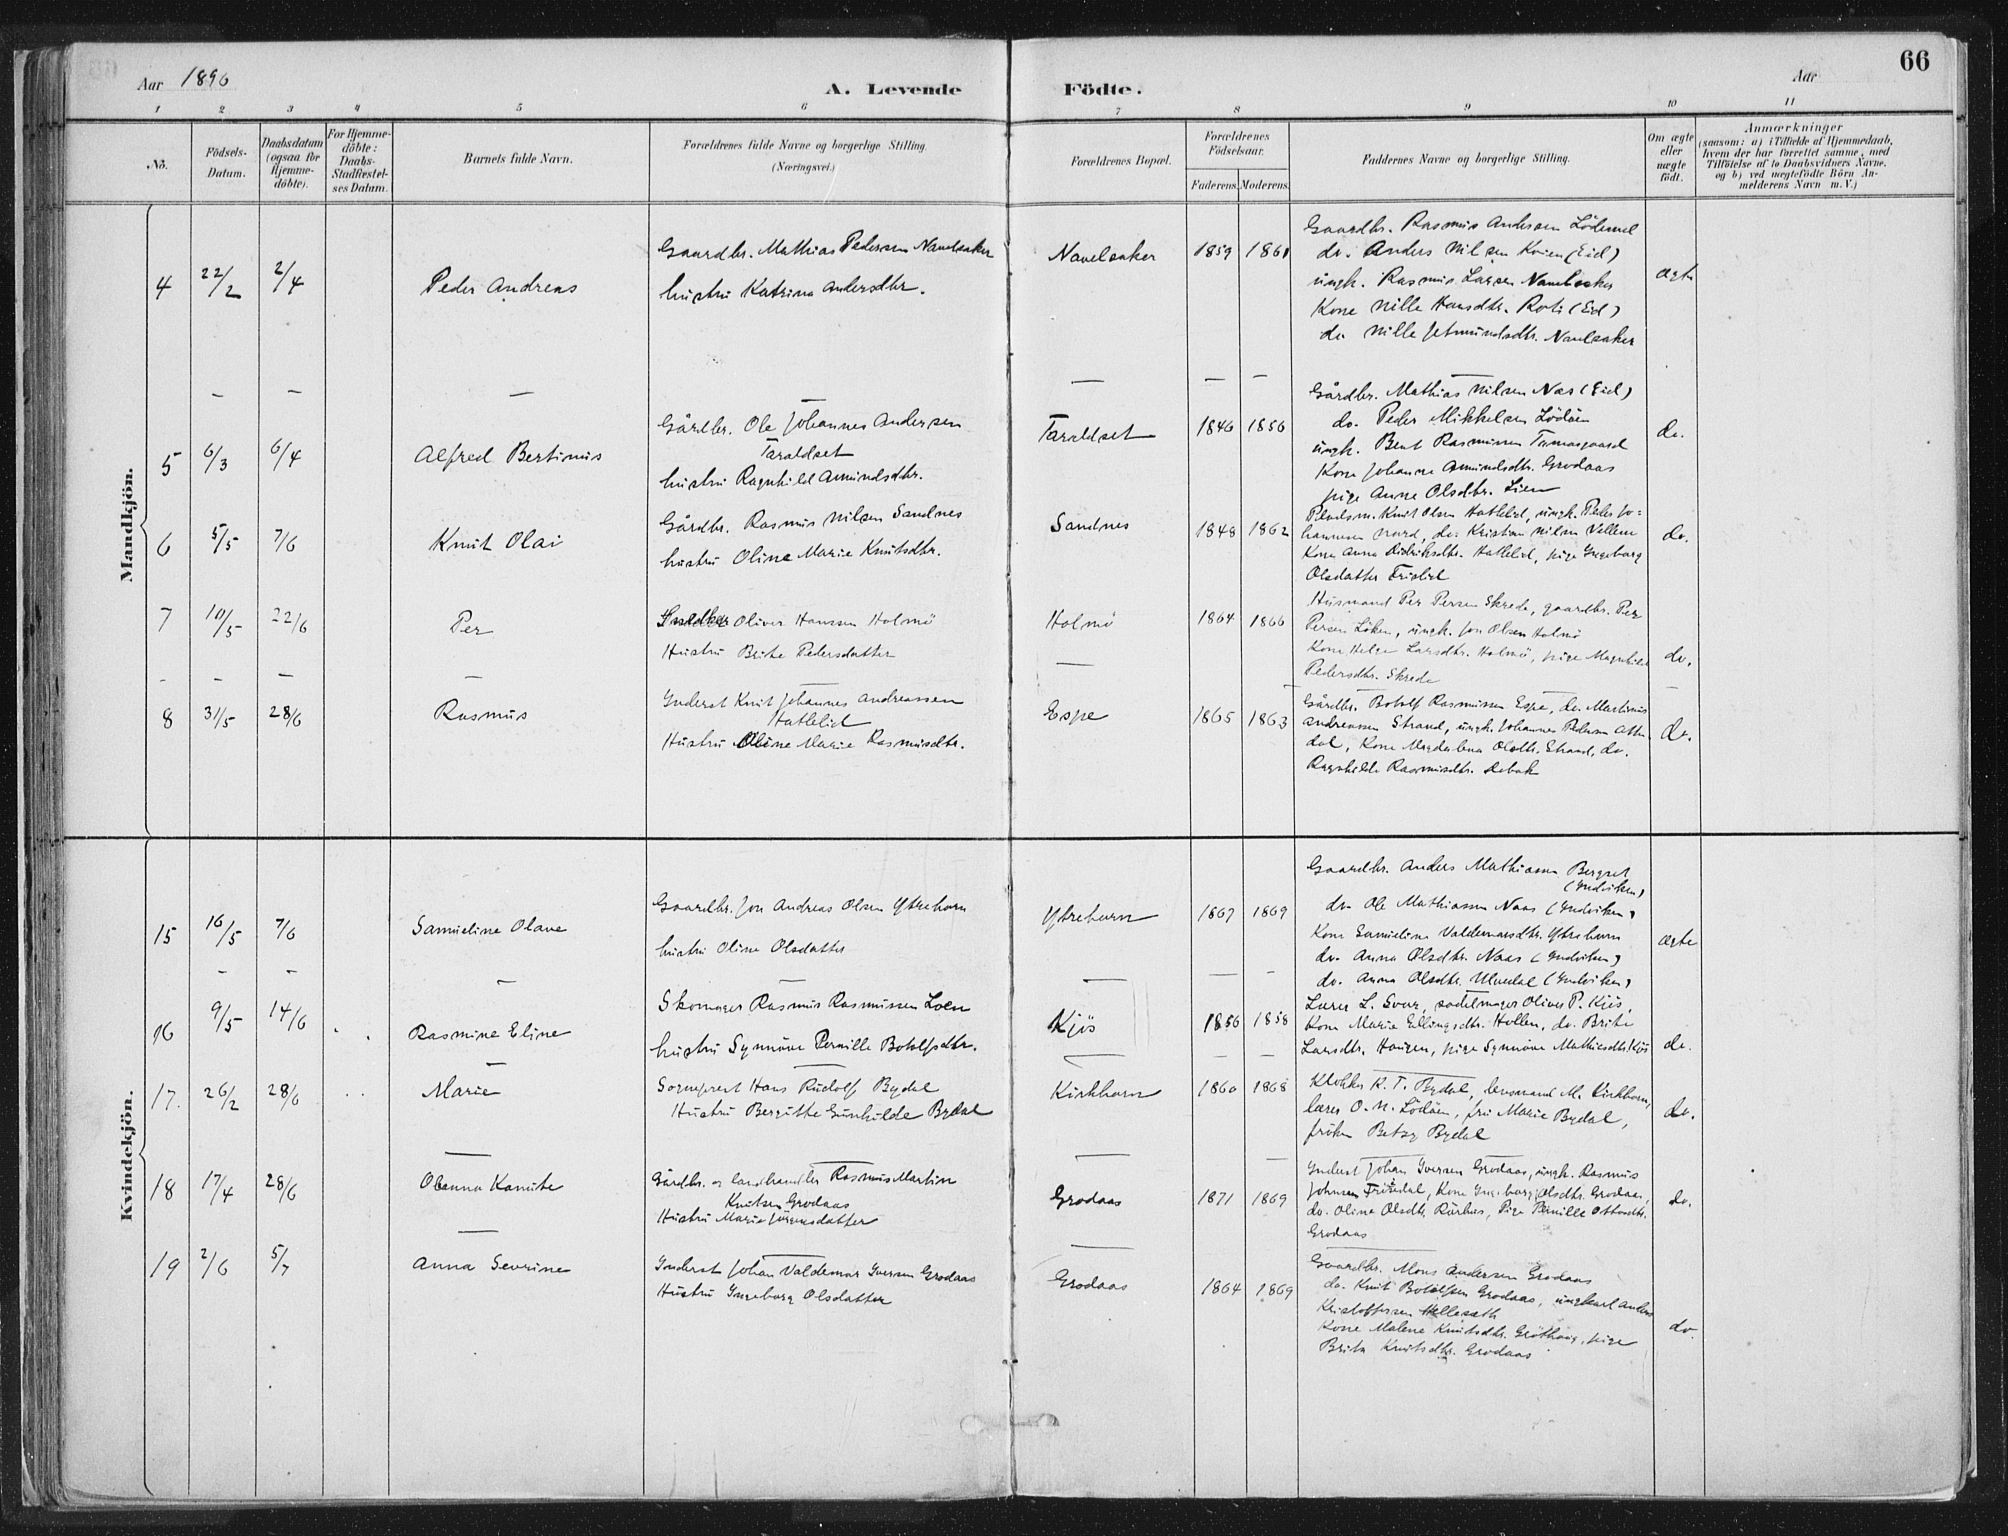 Aar 1896
A. Levende
Födte.
Aar
66
1 2 3 4 5 6 7 8 9 10 11
No.
Födsels-Datum.
Daabsdatum (ogsaa for Hjemme-döbte).
For Hjemme-döbte: Daabs-Stadfæstel-ses Datum.
Barnets fulde Navn.
Forældrenes fulde Navne og borgerlige Stilling. (Næringsvei.)
Forældrenes Bopæl.
Forældrenes Födselsaar.
Faderens. Moderens.
Faddernes Navne og borgerlige Stilling.
Om ægte eller uægte födt.
Anmærkninger
(saasom: a) i Tilfælde af Hjemmedaab,
hvem der har forrettet samme, med
Tilföielse af to Daabsvidners Navne,
og b) ved uægtefödte Börn An-
melderens Navn m. V.)
Mandkjön.
4 22/2 2/4 Peder Andreas
Gaardbr. Mathias Pedersen Navelsaker
hustru Katrina Andersdtr.
Navelsaker 1859 1861
Gaardbr. Rasmus Andersen Lödemel
do. Anders Nilsen Kvien (Eid)
ungk. Rasmus Larsen Navelsaker
Kone Nille Hansdtr. Roti (Eid)
do Nille Jetmundsdtr. Navelsaker
ægte
5 6/3 6/4 Alfred Bertinus
Gårdbr. Ole Johannes Andersen
Taraldset
hustru Ragnhild Amundsdtr.
Taraldset 1846 1856
Gårdbr. Mathias Nilsen Nes (Eid)
do. Peder Mikkelsen Lödöen
ungk. Bent Rasmussen Tomasgaard
Kone Johanne Amundsdtr. Grodaas
pige Anne Olsdtr. Lien
do.
6 5/5 7/6 Knut Olai
Gårdbr. Rasmus Nilsen Sandnes
hustru Oline Marie Knutsdtr.
Sandnes 1848 1862
Knut Olsen Hatlelid, ungk. Peder Jo-
hannesen Nord, do. Kristian Nilsen
Kone Anna Didriksdtr. Hatlelid, pige Ingeborg
Olsdatter Frislid
do.
7 10/5 22/6 Per
Snedker Oliver Hanssen Holmö
Hustru Brite Pedersdatter
Holmö 1864 1866
Husmand Per Persen Skrede, gaardbr. Per
Persen Löken, ungk. Jon Olsen Holmö
Kone Helge Larsdtr. Holmö, pige Magnhild
Pedersdtr. Skrede
do.
8 31/5 28/6 Rasmus
Inderst Knut Johannes Andreassen
Hatlelid
Hustru Oline Marie Rasmusdtr.
Espe 1865 1863
Gårdbr. Botolf Rasmussen Espe, do. Martinus
Andreassen Strand, ungk. Johannes Pedersen
dal, Kone Magdalena Olsdtr. Strand, do.
Ragnhilde Rasmusdtr.
do.
Kvindekjön.
15 16/5 7/6 Samueline Olave
Gaardbr. Jon Andreas Olsen Ytrehorn
hustru Oline Olsdatter
Ytrehorn 1867 1869
Gaardbr. Anders Mathiassen Bergset
(Indviken)
do Ole Mathiassen Naas (Indviken)
Kone Samueline Valdemarsdtr. Ytrehorn
do. Anna Olsdtr. Naas (Indviken)
do. Anna Olsdtr. Ulvedal (Indviken)
ægte
16 9/5 14/6 Rasmine Eline
Skomager Rasmus Rasmussen Loen
hustru Synnöve Pernille Botolfsdtr.
Kjös 1856 1858
Lærer L. Svor, sadelmager Oliver P. Kjös,
Kone Marie Ellingsdtr. Hollen, do. Brite
Larsdtr. Haugen, pige Synnöve Mathiasdtr. Kjös
do.
17. 26/2 28/6 Marie
Sogneprest Hans Rudolf Bydal
Hustru Bergitte Gunhilde Bydal
Kirkhorn 1860 1868
Klokker K. T. Bydal, lensmand M. Kirkhorn,
lærer O. N. Lödöen, fru Marie Bydal,
fröken Betsy Bydal
do.
18 17/4 28/6 Oleanna Kanute
Gårdbr. og landhandler Rasmus Martin
Knutsen Grodaas
Hustru Marie Jörgensdatter
Grodaas 1871 1869
Inderst Johan Iversen Grodaas, ungk. Rasmus
Johnsen Frisdal, Kone Ingeborg Olsdtr. Grodaas,
do. Oline Olsdtr. Rörhus, Pige Pernille Ottosdtr.
Grodaas
do.
19 2/6 5/7 Anna Sevrine
Inderst Johan Valdemar Iversen Grodaas
Hustru Ingeborg Olsdatter
Grodaas 1864 1869
Gaardbr. Mons Andersen Grodaas
do. Knut Botolfsen Grodaas, ungkarl Anders
Kristoffersen Hellesæth
Kone Malene Knutsdtr. Gröthaug, pige
Brita Knutsdtr. Grodaas
do.